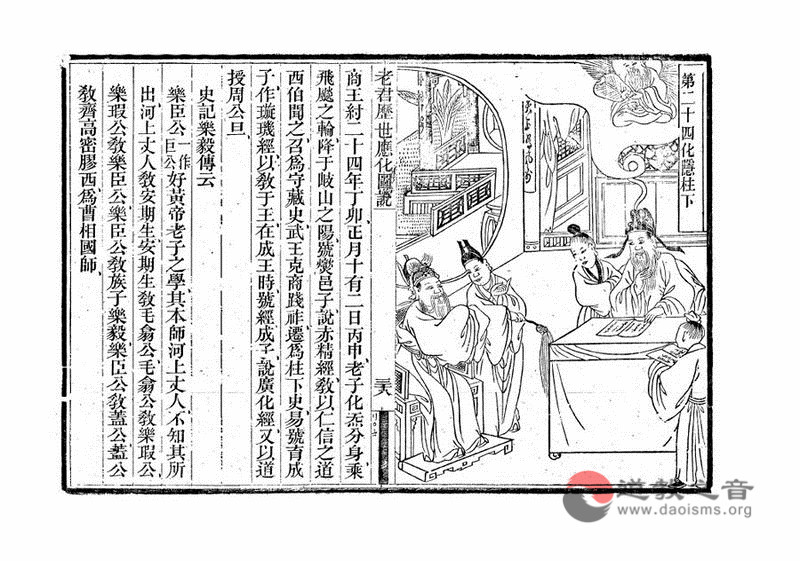 第二十四化隱柱下
老君歷世應化圖說
商王紂二十四年丁卯正月十有二日丙申老子化炁分身乘
飛飈之輪降于岐山之陽號燮邑子說赤精經教以仁信之道
西伯聞之召爲守藏史武王克商踐祚遷爲柱下史易號育成
子作璇璣經以教于王在成王時號經成子說廣化經又以道
授周公旦
史記樂毅傳云
樂臣公一作巨公好黃帝老子之學其本師河上丈人不知其所
出河上丈人教安期生安期生教毛翕公毛翕公教樂瑕公
樂瑕公教樂臣公樂臣公教族子樂毅樂臣公教蓋公蓋公
教齊高密膠西爲曹相國師
道教之音
www.daoisms.org